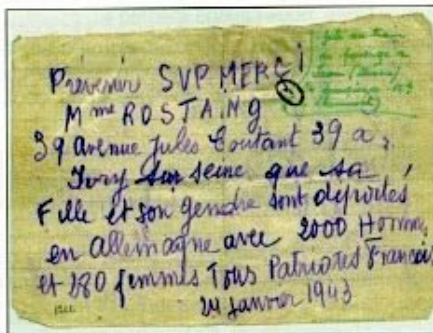 Prévenir SVP MERCI
Mme ROSTAING
39 Avenue Jules Coutant 39 a,
Ivry sur seine que sa
Fille et son gendre sont déportés
en allemagne avec 2000 Homme,
et 280 femmes Tous Patriotes Francais
24 Janvier 1943